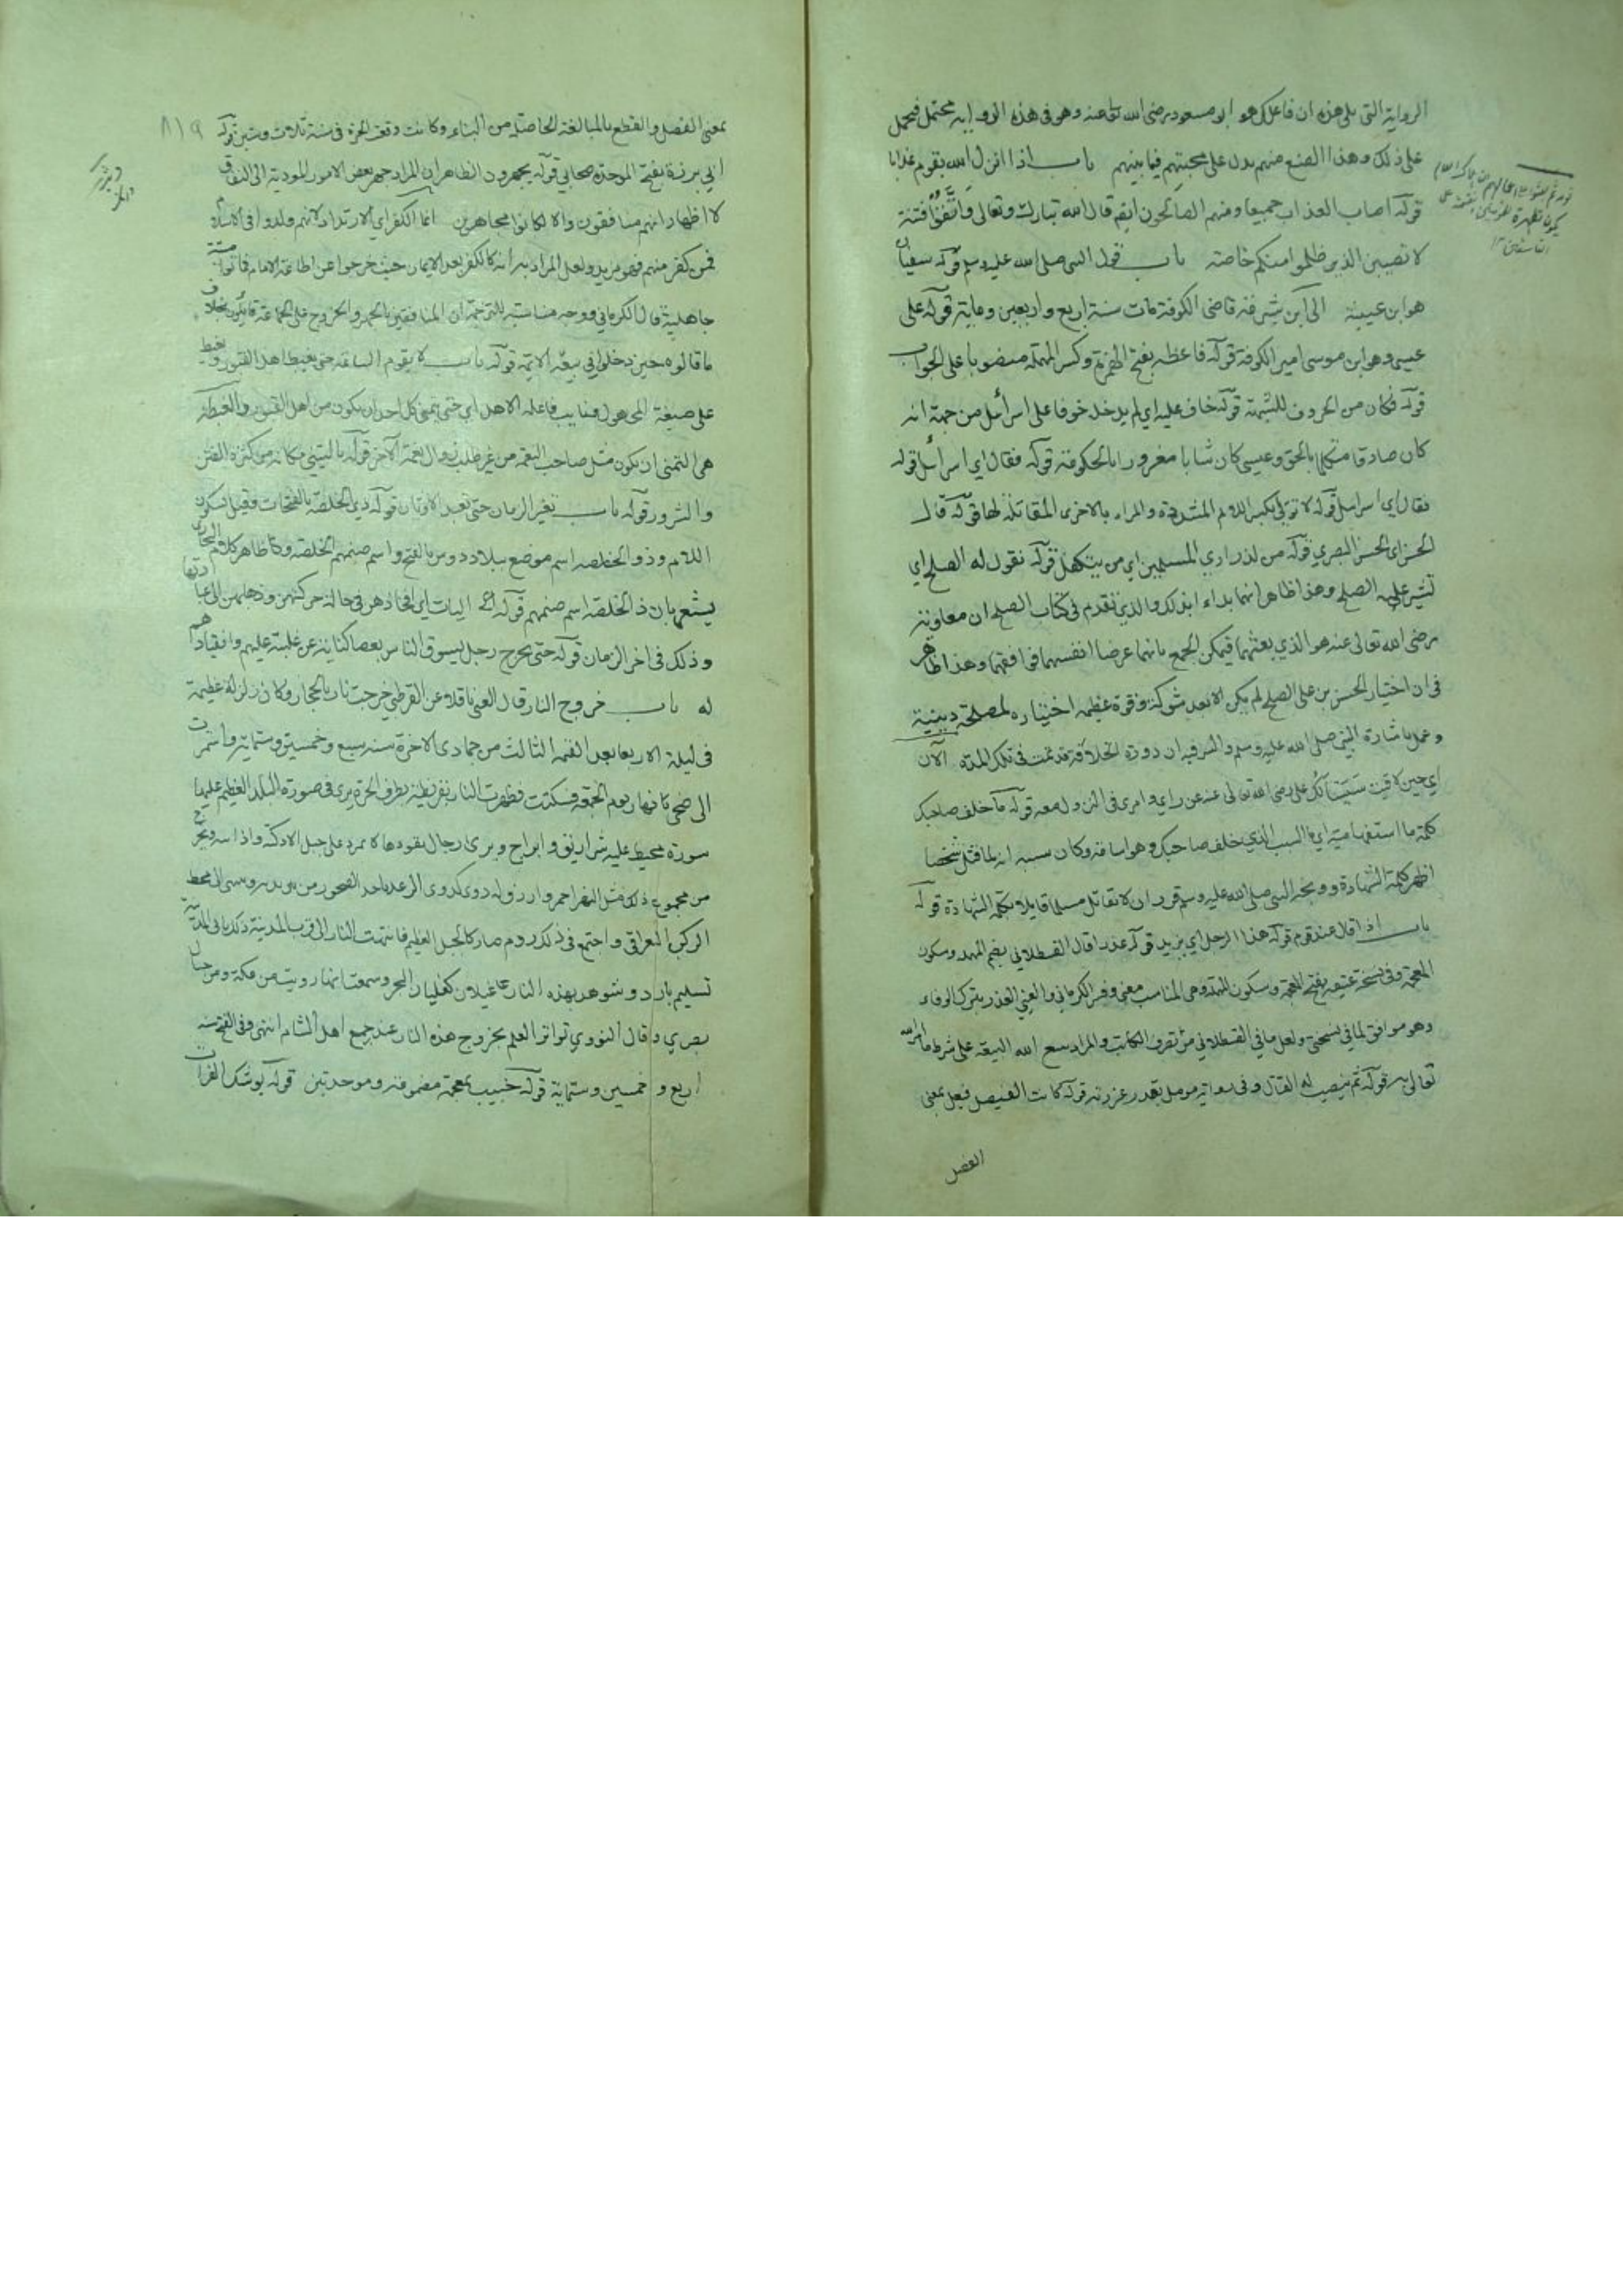 الرواية التي يلي هذه ان فاعل ذلك هو ابو مسعود رضي الله تعالى عنه وهو في هذه الرواية محتمل فيحمل
على ذلك وهذا الصنع منهم يدل على محبتهم فيما بينهم باب اذا انزل الله بقوم عذابا
قوله اصاب العذاب جميعا ومنهم الصالحون ايضا قال الله تبارك وتعالى واتقوا فتنة
لا تصيبن الذين ظلموا منكم خاصة باب قول النبي صلى الله عليه وسلم قوله سفيان
هو ابن عيينة الى ابن شبرمة قاضي الكوفة مات سنة اربع واربعين ومايه قوله على
عيسى وهو ابن موسى امير الكوفة قوله فاعظه بفتح الهمزة وكسر المهملة منصوبا على الجواب
قوله فكان من الحروف المشبهة قوله خاف عليه اي لم يدخله خوفا على اسرائيل من جهة انه
كان صادقا متكلما بالحق وعيسى كان شابا مغرورا بالحكومة قوله فقال اي اسرائيل قوله
فقال اي اسرائيل قوله لا تولي بكسر اللام المشددة والمراد بالاخرى المقاتلة لها قوله قال
الحسن اي الحسن البصري قوله من لذراري المسلمين اي من يتكفل قوله نقول له الصلح اي
نشير عليه الصلح وهذا ظاهر انهما بداء ا بذلك والذي تقدم في كتاب الصلح ان معاوية
رضي الله تعالى عنه هو الذي بعثهما فيمكن الجمع بانهما عرضا انفسهما فوافقهما وهذا ظاهر
في ان اختيار الحسن بن على الصلح لم يكن الا بعد شوكة وقوة عظيمة اختياره لمصلحة دينية
وعمل باشارة النبي صلى الله عليه وسلم والسر فيه ان دورة الخلافة قد تمت في تلك المدة الآن
اي حين لاقيت سيسئالك على رضي الله تعالى عنه عن راي وامري في النزول معه قوله ما خلف صاحبك
كلمة ما استفهامية اي ما السبب الذي خلف صاحبك وهو اسامة وكان سببه انه لما قتل شخصا
اظهر كلمة الشهادة ووبخه النبي صلى الله عليه وسلم قرر ان لا تقاتل مسلما قايلا بكلمة الشهادة قوله
باب اذا قال عند قوم قوله هذا الرجل اي يزيد قوله غدرا قال القسطلاني بضم المهملة وسكون
المعجمة وفي نسخة عتيقة بفتح المعجمة وسكون المهملة وهي المناسب معنى وفسر الكرماني والعيني الغدر بترك الوفاء
وهو موافق لما في نسختي ولعل ما في القسطلاني من تصرف الكاتب والمراد ببيع الله البيعة على شرط ما امر الله
تعالى به قوله ثم ينصب له القتال وفي رواية مومل بغدر عزرته قوله كانت الفيصل فيعل بمعنى
الفصل
٨١٩
بمعنى الفصل والقطع بالمبالغة الحاصلة من البناء وكانت وقعة الحرة في سنة ثلاث وستين قوله
ابي برزة بفتح الموحدة صحابي قوله يجهرون الظاهر ان المراد جهر بعض الامور المودية الى النفاق
لا اظهار انهم منافقون والا لكانوا مجاهرين انما الكفر اي الارتداد لانهم ولدوا في الاسلام
فمن كفر منهم فهو مرتد ولعل المراد به انه كالكفر بعد الايمان حيث خرجوا عن اطاعة الامام فماتوا ميتة
جاهلية قال الكرماني ووجه مناسبته للترجمة ان المنافقين بالجهر والخروج على الجماعة قايلون بخلاف
ما قالوه حين دخلوا في بيعة الايمة قوله باب لا يقوم الساعة حتى يغبط اهل القبور يغبط
على صيغة المجهول ونايب فاعله الاهل اي حتى يتمنى كل احد ان يكون من اهل القبور والغبطة
هي التمني ان يكون مثل صاحب النعمة من غير طلب زوال نعمة الآخر قوله يا ليتني مكانه من كثرة الفتن
والشرور قوله باب تغير الزمان حتى تعبد الاوثان قوله ذي الخلصة بالفتحات وقيل بسكون
اللام وذو الخلصة اسم موضع ببلاد دوس بالفتح واسم صنمهم الخلصة وظاهر كلام البخاري
يشعر بان ذا الخلصة اسم صنمهم قوله اليات اي افخاذهن في حالة حركتهن وذهابهن الى عبادتها
وذلك في اخر الزمان قوله حتى يخرج رجل يسوق الناس بعصا كناية عن غلبته عليهم وانقيادهم
له باب خروج النار قال العيني ناقلا عن القرطبي خرجت نار بالحجاز وكان زلزلة عظيمة
في ليلة الاربعا بعد العتمة الثالث من جمادى الاخرة سنه سبع وخمسين وستمايه واستمرت
الى ضحى نهار يوم الجمعة فسكنت فظهرت النار بقريظة بطرف الحرة يرى في صورة البلد العظيم عليها
سورة محيط عليه شراريف وابراج ويرى رجال يقودها لا تمر على جبل الا دكته واذابته ويخرج
من مجموع ذلك مثل النهر احمر وازرق له دوي كدوي الرعد ياخذ الصخور من بين يديه وينتهي الى محط
الركب العراقي واجتمع في ذلك روم صار كالجبل العظيم فانتهت النار الى قرب المدينة ذلك ياتي المدينة
نسيم بارد وشوهد بهذه النار غليان كغليان البحر وسمعت انها رويت من مكة ومن جبال
بصري وقال النووي تواتر العلم بخروج هذه النار عند جميع اهل الشام انتهى وفي الفتح سنه
اربع وخمسين وستماية قوله خبيب بمعجمة مضمومة وموحدتين قوله يوشك الفرات